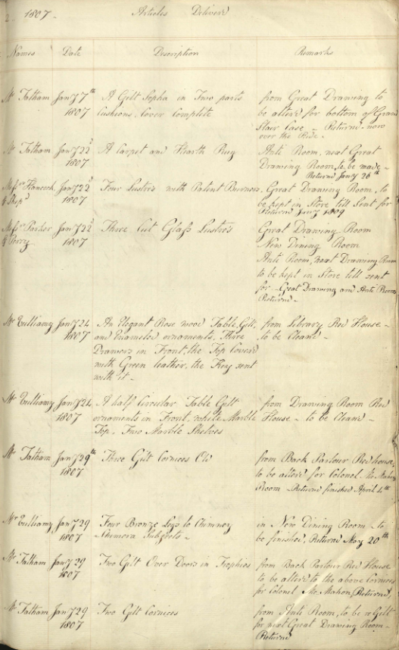 2 1807. Articles Delivered
Names Date Description Remarks
Mr Tatham Jany 7th A Gilt Sopha in Two parts from Great Drawing to
1807 Cushions, Cover Complete be altered for bottom of Grand
Stair Case - Returned now
over the
Mr Tatham Jany 22 A Carpet and Hearth Rug Anti Room, next Great
1807 Drawing Room, to be made
Returned Jany 26th
Messrs Hancock Jany 22 Four Lusters with Patent Burners Great Drawing Room, to
1807 be kept in Store till sent for
Returned Jany 1809
Messrs Parker Jany 22 Three Cut Glass Lusters Great Drawing Room
& Perry 1807 New Dining Room
Anti Room, next Drawing Room
to be kept in Store till sent
for - Great Drawing and Anti Room
Returned -
Mr Vulliamy Jany 24 An Elegant Rose wood Table, Gilt, from Library Red House -
1807 and Enameled ornaments, Three to be Cleand -
Drawers in Front, the Top Covered
with Green leather, the Key sent
with it -
Mr Vulliamy Jany 24 A half Circular Table Gilt from Drawing Room Red
1807 ornaments in Front, white Marble House - to be Cleand -
Top - Two Marble Shelves
Mr Tatham Jany 29th Three Gilt Cornices from Back Parlour Red house,
1807 to be altered for Colonel Mc Mahon
Room - Returned finished April 4th
Mr Vulliamy Jany 29 Four Bronze Legs to Chimney in New Dining Room - to
1807 be finished, Returned May 20th
Mr Tatham Jany 29 Two Gilt Over Doors in Trophies from Back Parlour Red House
1807 to be altered to the above Cornices
for Colonel Mc Mahon, Returned,
Mr Tatham Jany 29 Two Gilt Cornices from Anti Room, to be reGilt
1807 for next Great Drawing Room -
Returned